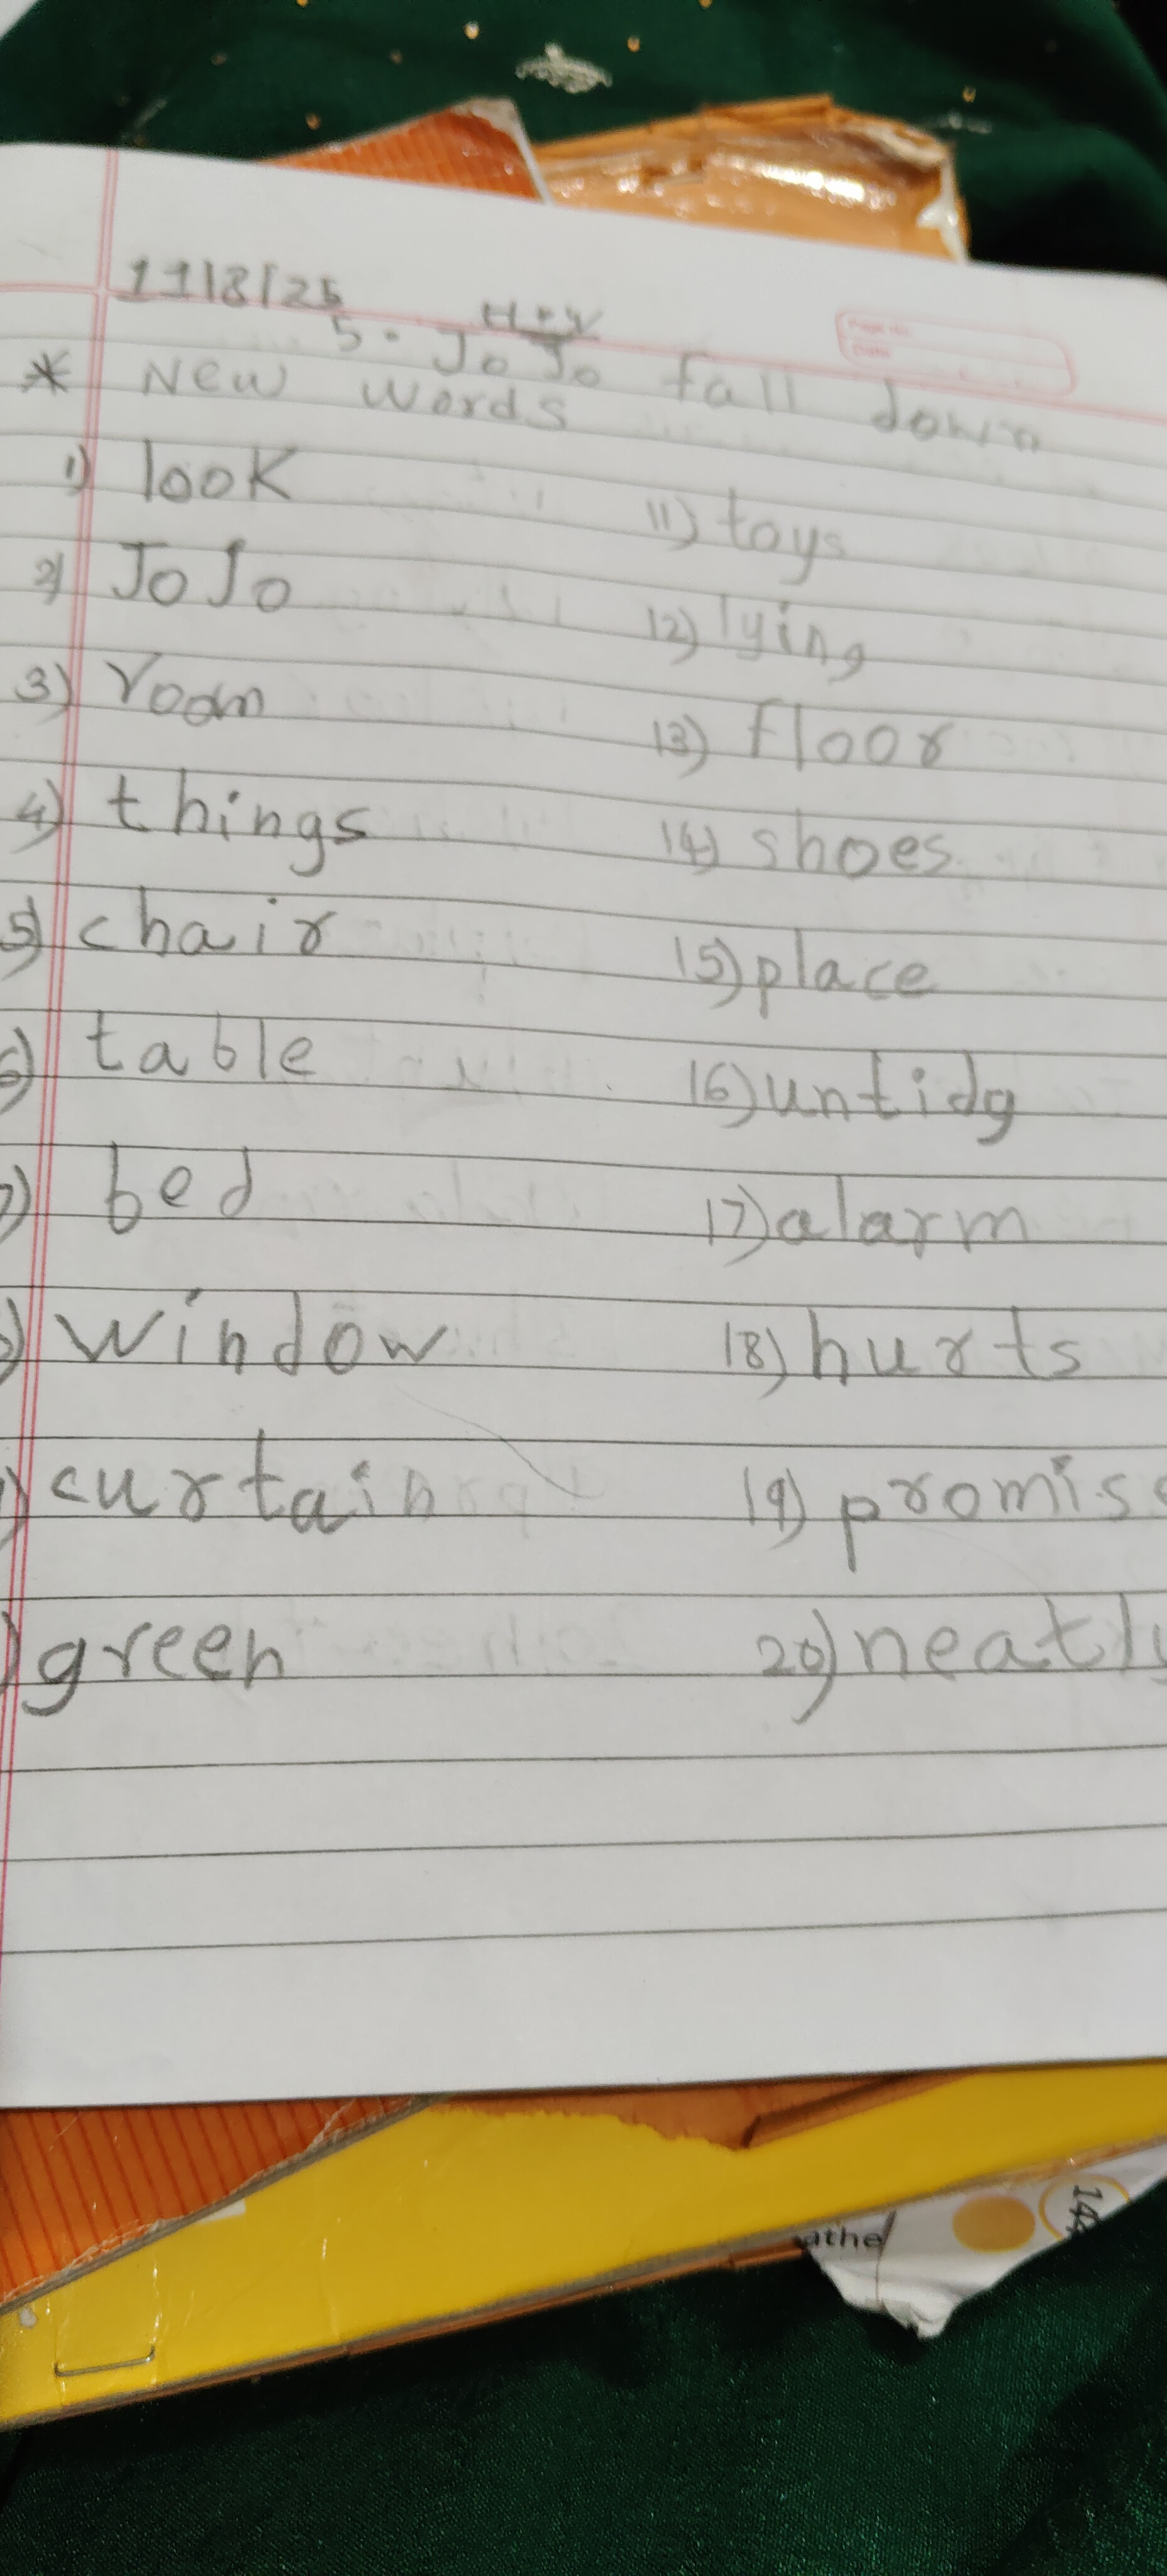 11/8/25
H.W
5. JoJo fall down
* New words
1) look
2) JoJo
3) room
4) things
5) chair
6) table
7) bed
8) window
9) curtain
10) green
11) toys
12) lying
13) floor
14) shoes
15) place
16) untidg
17) alarm
18) hurts
19) promise
20) neatly
athe